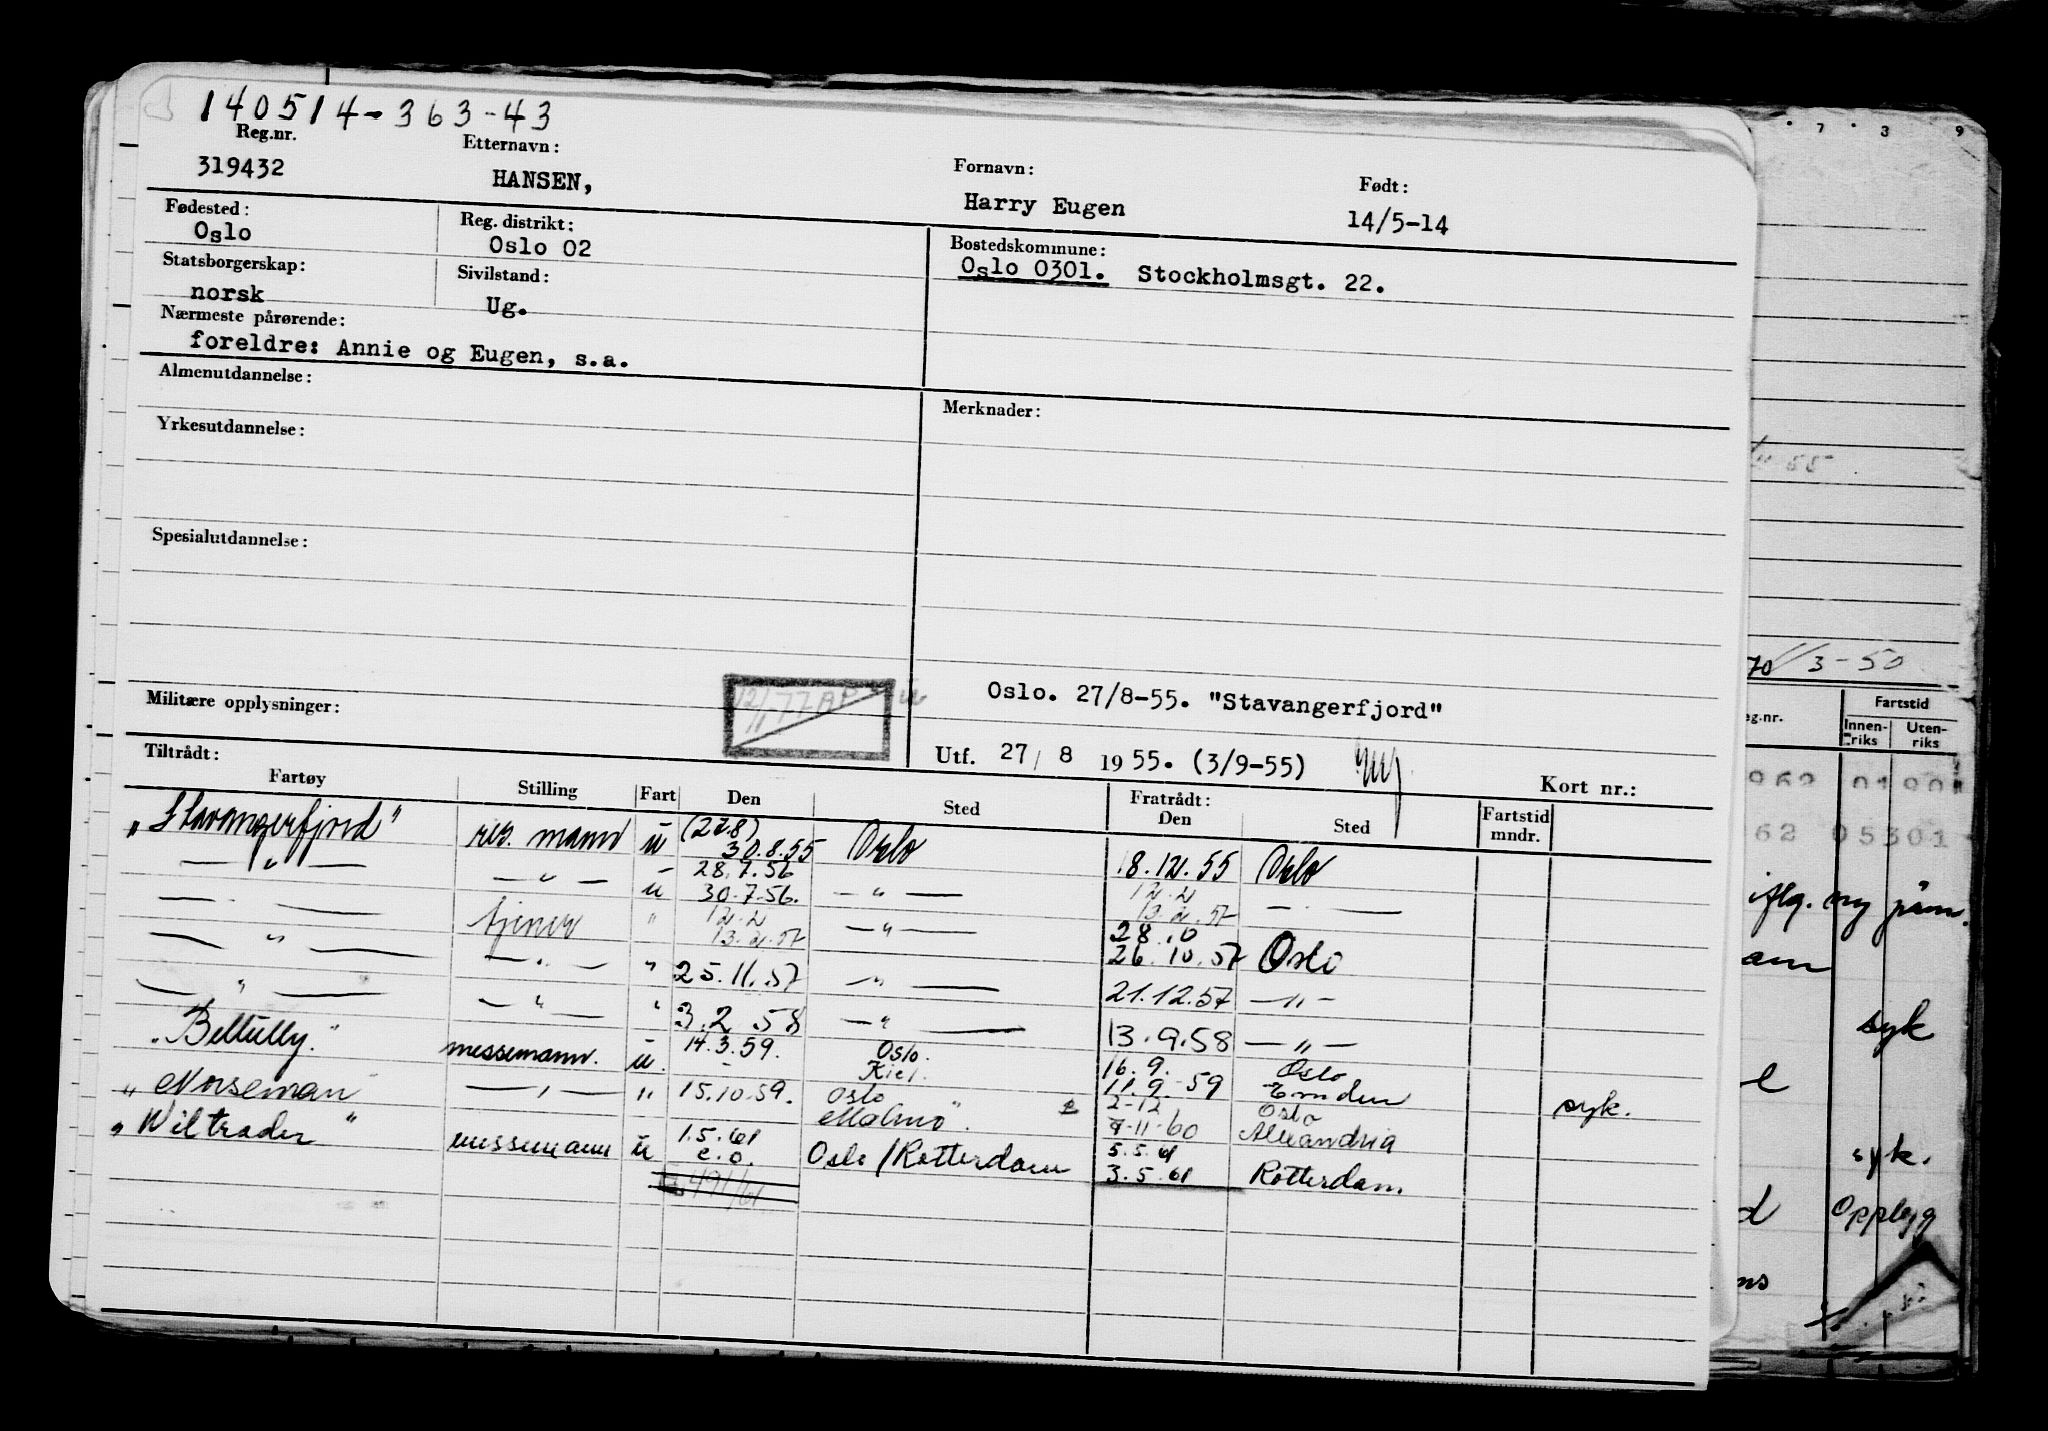 140514-363-43
Reg.nr. Etternavn: Fornavn: Født:
319432 HANSEN, Harry Eugen 14/5-14
Fødested: Reg. distrikt: Bostedskommune:
Oslo Oslo 02 Oslo 0301. Stockholmsgt. 22.
Statsborgerskap: Sivilstand:
norsk Ug.
Nærmeste pårørende:
foreldre: Annie og Eugen, s.a.
Almenutdannelse: Merknader:
Yrkesutdannelse:
Spesialutdannelse:
Militære opplysninger: Oslo. 27/8-55. "Stavangerfjord"
Utf. 27/ 8 1955. (3/9-55) Kort nr.:
Tiltrådt: Fratrådt:
Fartøy Stilling Fart Den Sted Den Sted Fartstid mndr.
"Stavangerfjord" res. mann u (27.8) 30.8.55 Oslo 18.12.55 Oslo
— " — — " — u 28.7.56 30.7.56. — " — 12.2 13.2.57 — " —
— " — tjener " 12.2 13.2.57 — " — 28.10 26.10.57 Oslo
— " — — " — " 25.11.57 — " — 21.12.57 — " —
— " — — " — " 3.2 58 — " — 13.9.58 — " —
"Beltully." messemann. u. 14.3.59. Oslo. Kiel. 16.9. 11.9.59 Oslo Emden syk.
"Norseman" — " — " 15.10.59. Oslo Malmö". 2-12 7-11-60 Oslo Alexandria
"Wiltrader" messemann u 1.5.61 e.o. Oslo/Rotterdam 5.5.61 3.5.61 Rotterdam.
491/61
7 3 9
11 55
70 /3-50
eg.nr. Fartstid
Innen-riks Uten-riks
062 0190
62 05301
syk
syk.
Opplegg